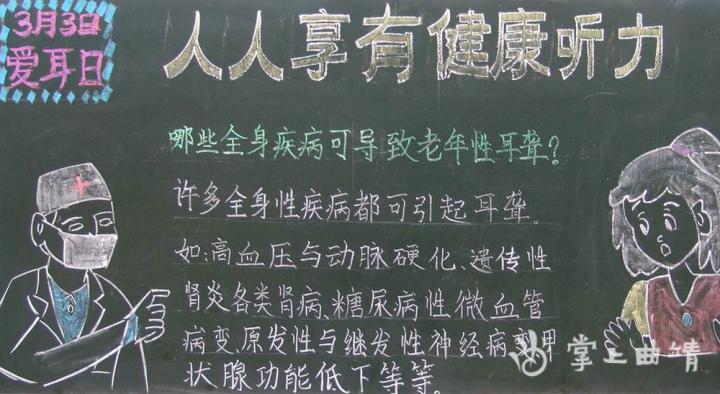 3月3日
爱耳日
人人享有健康听力
哪些全身疾病可导致老年性耳聋？
许多全身性疾病都可引起耳聋。
如：高血压与动脉硬化、遗传性
肾炎各类肾病、糖尿病性微血管
病变、原发性与继发性神经病变甲
状腺功能低下等等。
掌上曲靖